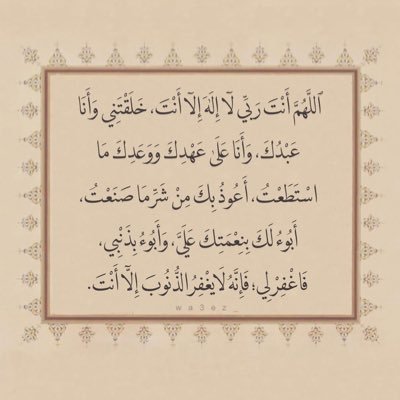 اَللَّهُمَّ أَنْتَ رَبِّي لَا إِلَهَ إِلَّا أَنْتَ، خَلَقْتَنِي وَأَنَا
عَبْدُكَ، وَأَنَا عَلَى عَهْدِكَ وَوَعْدِكَ مَا
اسْتَطَعْتُ، أَعُوذُ بِكَ مِنْ شَرِّ مَا صَنَعْتُ،
أَبُوءُ لَكَ بِنِعْمَتِكَ عَلَيَّ، وَأَبُوءُ بِذَنْبِي،
فَاغْفِرْ لِي؛ فَإِنَّهُ لَا يَغْفِرُ الذُّنُوبَ إِلَّا أَنْتَ.
wa3ez_